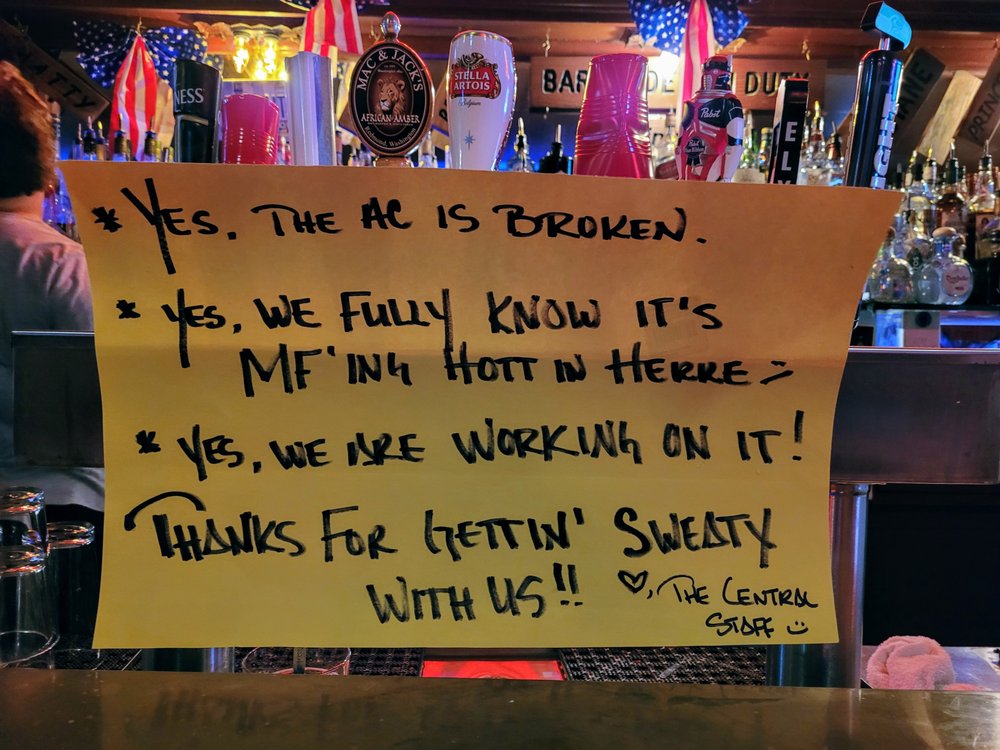 ATTY
NESS
MAC & JACK'S
AFRICAN AMBER
Redmond, Washington
STELLA
ARTOIS
Belgium
BAR
DUTY
Pabst
EL
PRINC
* YES, THE AC IS BROKEN.
* YES, WE FULLY KNOW IT'S
MF'ING HOTT IN HERRE :)
* YES, WE ARE WORKING ON IT!
THANKS FOR GETTIN' SWEATY
WITH US!!
♡, THE CENTRAL
STAFF :)